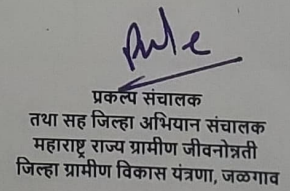 प्रकल्प संचालक
तथा सह जिल्हा अभियान संचालक
महाराष्ट्र राज्य ग्रामीण जीवनोन्नती
जिल्हा ग्रामीण विकास यंत्रणा, जळगाव